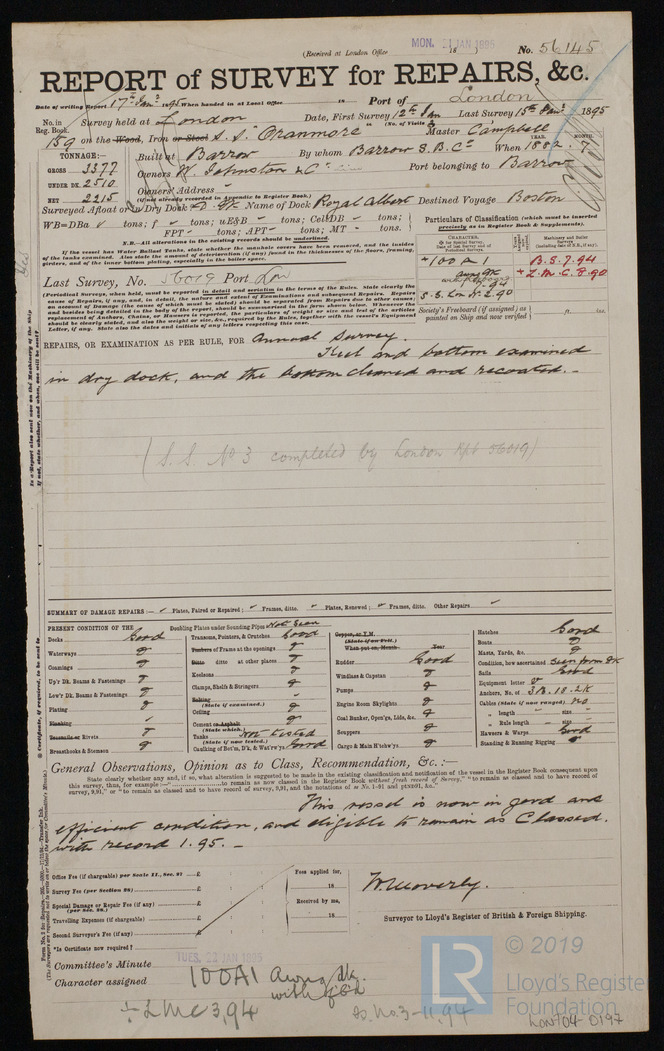 (Received at London Office MON. 21 JAN 1895 18 ) No. 56145
REPORT of SURVEY for REPAIRS, &c.
Date of writing Report 17th Jany 1895 When handed in at Local Office 18 Port of London
No. in Reg. Book. Survey held at London Date, First Survey 12th Jan Last Survey 15th Jany 1895
(No. of Visits )
159 on the Wood, Iron or Steel S.S. "Oranmore" Master Campbell
TONNAGE:— Built at Barrow By whom Barrow S.B. Co When 1882 7
YEAR. MONTH.
GROSS 3377 Owners W. Johnston & Co Port belonging to Barrow
UNDER DK. 2510 Owners' Address
(if not already recorded in Appendix to Register Book.)
NET 2215
Surveyed Afloat or in Dry Dock Name of Dock Royal Albert Destined Voyage Boston
WB=DBa tons; f tons; uE&B tons; CellDB tons;
FPT tons; APT tons; MT tons.
N.B.—All alterations in the existing records should be underlined.
If the vessel has Water Ballast Tanks, state whether the manhole covers have been removed, and the insides
of the tanks examined. Also state the amount of deterioration (if any) found in the thicknesses of the floors, framing,
girders, and of the inner bottom plating, especially in the boiler space.
Particulars of Classification (which must be inserted
precisely as in Register Book & Supplements).
CHARACTER.
+100 A 1 B.S. 7.94
+L.M.C. 8.90
S.S. Lon No 2.90
Society's Freeboard (if assigned) as
painted on Ship and now verified ft. ins.
Last Survey, No. 56019 Port Lon
(Periodical Surveys, when held, must be reported in detail and seriatim in the terms of the Rules. State clearly the
cause of Repairs, if any, and, in detail, the nature and extent of Examinations and subsequent Repairs. Repairs
on account of Damage (the cause of which must be stated) should be separated from Repairs due to other causes;
and besides being detailed in the body of the report, should be summarised in the form shown below. Whenever the
replacement of Anchors, Chains, or Hawsers is reported, the particulars of weight or size and test of the articles
should be clearly stated, and also the weight or size, &c., required by the Rules, together with the vessel's Equipment
Letter, if any. State also the dates and initials of any letters respecting this case.
REPAIRS, OR EXAMINATION AS PER RULE, FOR Annual Survey.
Keel and bottom examined
in dry dock, and the bottom cleaned and recoated.—
(S.S. No 3 completed by London Rpt 56019)
SUMMARY OF DAMAGE REPAIRS:— Plates, Faired or Repaired; Frames, ditto. Plates, Renewed; Frames, ditto. Other Repairs
PRESENT CONDITION OF THE Doubling Plates under Sounding Pipes Not Seen
Decks Good
Waterways
Coamings
Up'r Dk. Beams & Fastenings
Low'r Dk. Beams & Fastenings
Plating
Planking
Treenails or Rivets
Breasthooks & Stemson
Transoms, Pointers, & Crutches Good
Timbers of Frame at the openings
Ditto ditto at other places
Keelsons
Clamps, Shelfs & Stringers
Salting
(State if examined.)
Ceiling
Cement or Asphalt
(State which).
Tanks Not tested
(State if now tested.)
Caulking of Bot'm, D'k, & Wat'rw'ys Good
Copper, or Y.M.
(State if on Felt.)
When put on, Month Year
Rudder Good
Windlass & Capstan
Pumps
Engine Room Skylights
Coal Bunker, Open'gs, Lids, &c.
Scuppers
Cargo & Main H'tchw'ys
Hatches Good
Boats
Masts, Yards, &c.
Condition, how ascertained Seen from Dk
Sails Good
Equipment letter
Anchors, No. of 3B. 1S. 2K
Cables (State if now ranged) No
" length " size
" Rule length " size
Hawsers & Warps Good
Standing & Running Rigging
General Observations, Opinion as to Class, Recommendation, &c. :—
State clearly whether any, and if so, what alteration is suggested to be made in the existing classification and notification of the vessel in the Register Book consequent upon
this survey, thus, for example :—"..............to remain as now classed in the Register Book without fresh record of Survey," "to remain as classed and to have record of
survey, 9,91," or "to remain as classed and to have record of survey, 9,91, and the notations of
This vessel is now in good and
efficient condition, and eligible to remain as Classed.
with record 1.95.—
Office Fee (if chargeable) per Scale II., Sec. 27 £
Survey Fee (per Section 28) £
Special Damage or Repair Fee (if any) £
(per Sec. 28.)
Travelling Expenses (if chargeable) £
Second Surveyor's Fee (if any) £
*Is Certificate now required?
Fees applied for,
18
Received by me,
18
W. Moverly.
Surveyor to Lloyd's Register of British & Foreign Shipping.
Committee's Minute TUES. 22 JAN 1895
Character assigned 100A1 Awng dk.
with fbd
+LMC 3,94 ss. No. 3-11.94
LR
© 2019
Lloyd's Register
Foundation
LON704-0197